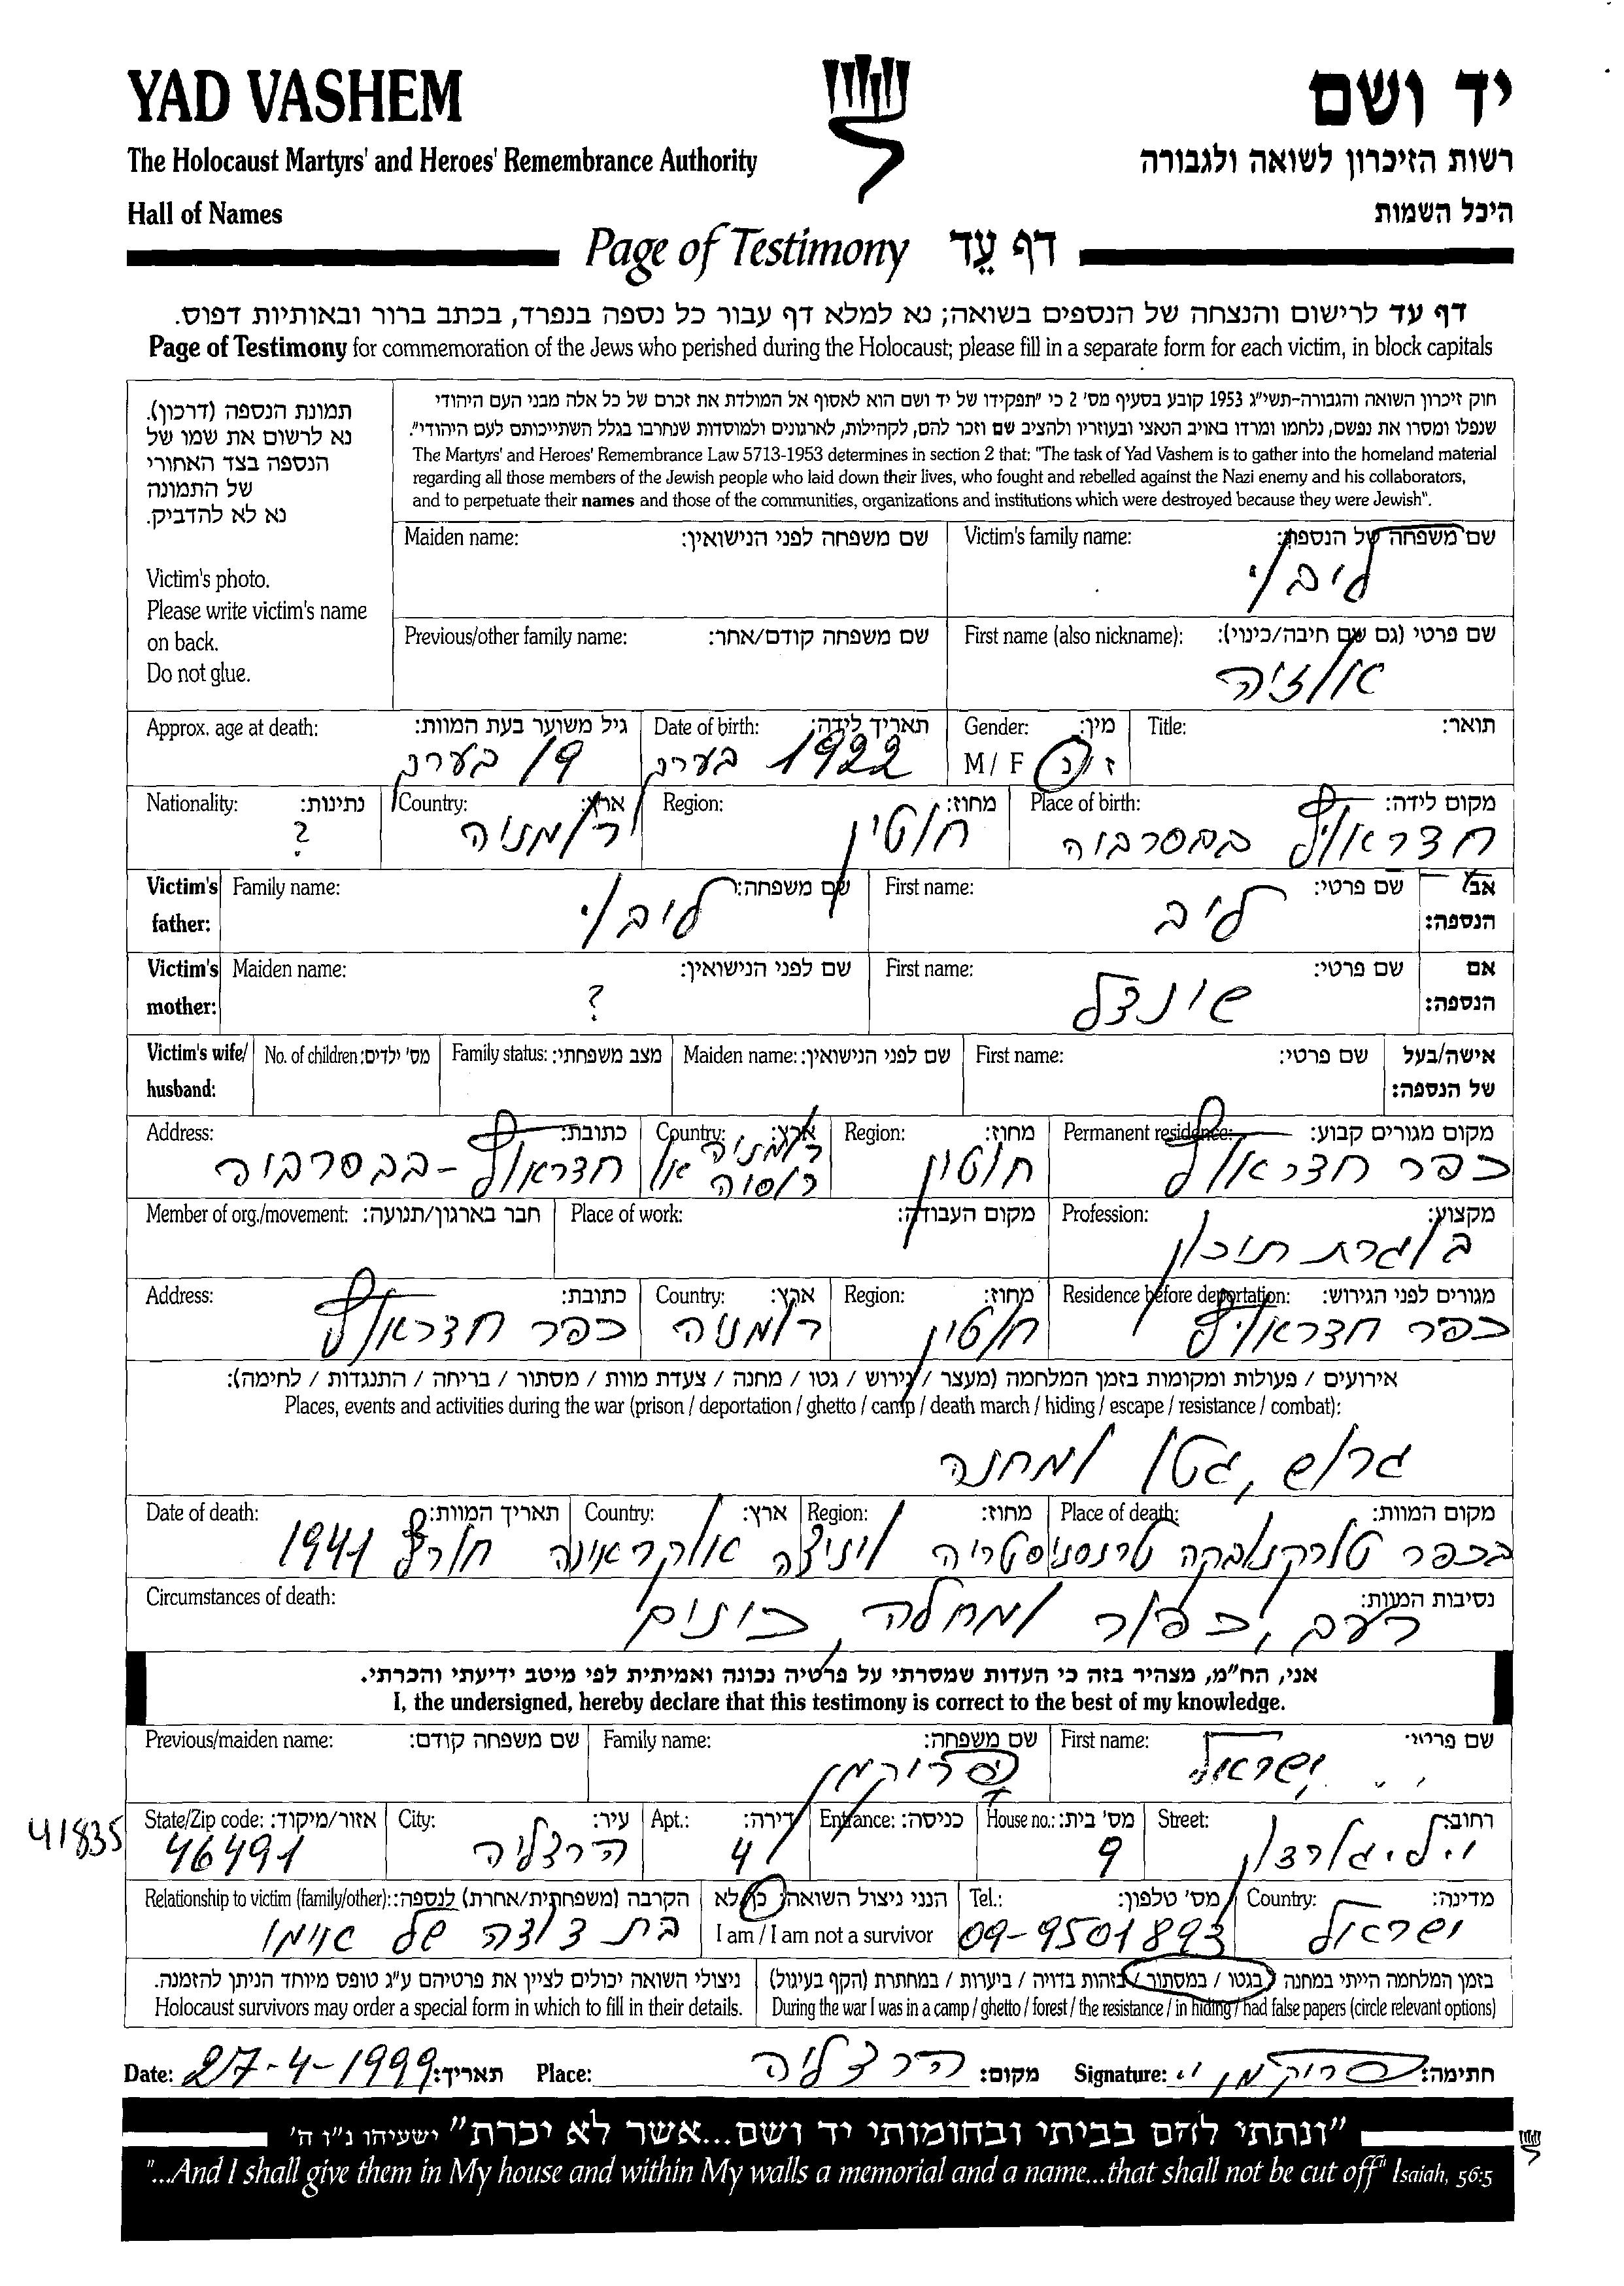 YAD VASHEM
יד ושם
The Holocaust Martyrs' and Heroes' Remembrance Authority
רשות הזיכרון לשואה ולגבורה
Hall of Names
היכל השמות
Page of Testimony דף עֵד
דף עד לרישום והנצחה של הנספים בשואה; נא למלא דף עבור כל נספה בנפרד, בכתב ברור ובאותיות דפוס.
Page of Testimony for commemoration of the Jews who perished during the Holocaust; please fill in a separate form for each victim, in block capitals
תמונת הנספה (דרכון).
נא לרשום את שמו של
הנספה בצד האחורי
של התמונה
נא לא להדביק.
Victim's photo.
Please write victim's name
on back.
Do not glue.
חוק זיכרון השואה והגבורה-תשי"ג 1953 קובע בסעיף מס' 2 כי "תפקידו של יד ושם הוא לאסוף אל המולדת את זכרם של כל אלה מבני העם היהודי
שנפלו ומסרו את נפשם, נלחמו ומרדו באויב הנאצי ובעוזריו ולהציב שם וזכר להם, לקהילות, לארגונים ולמוסדות שנחרבו בגלל השתייכותם לעם היהודי".
The Martyrs' and Heroes' Remembrance Law 5713-1953 determines in section 2 that: "The task of Yad Vashem is to gather into the homeland material
regarding all those members of the Jewish people who laid down their lives, who fought and rebelled against the Nazi enemy and his collaborators,
and to perpetuate their names and those of the communities, organizations and institutions which were destroyed because they were Jewish".
שם משפחה של הנספה: Victim's family name:
ליבוי
שם משפחה לפני הנישואין: Maiden name:
שם פרטי (גם שם חיבה/כינוי): First name (also nickname):
אוזיה
שם משפחה קודם/אחר: Previous/other family name:
תואר: Title:
מין: Gender:
ז/נ M / F
תאריך לידה: Date of birth:
1922 בערך
גיל משוער בעת המוות: Approx. age at death:
19 בערך
מקום לידה: Place of birth:
בבסרבוה
מחוז: Region:
חוטין
ארץ: Country:
רומניה
נתינות: Nationality:
?
אבי הנספה: Victim's father:
שם פרטי: First name:
ליב
שם משפחה: Family name:
ליבוי
אם הנספה: Victim's mother:
שם פרטי: First name:
שינדל
שם לפני הנישואין: Maiden name:
?
אישה/בעל של הנספה: Victim's wife/ husband:
שם פרטי: First name:
שם לפני הנישואין: Maiden name:
מצב משפחתי: Family status:
מס' ילדים: No. of children:
מקום מגורים קבוע: Permanent residence:
כפר
מחוז: Region:
חוטין
ארץ: Country:
רומניה או
רוסיה
כתובת: Address:
- בבסרבוה
מקצוע: Profession:
בוגרת תיכון
מקום העבודה: Place of work:
חבר בארגון/תנועה: Member of org./movement:
מגורים לפני הגירוש: Residence before deportation:
כפר
מחוז: Region:
חוטין
ארץ: Country:
רומניה
כתובת: Address:
כפר
אירועים / פעולות ומקומות בזמן המלחמה (מעצר / גירוש / גטו / מחנה / צעדת מוות / מסתור / בריחה / התנגדות / לחימה):
Places, events and activities during the war (prison / deportation / ghetto / camp / death march / hiding / escape / resistance / combat):
גרוש, גטו ומחנה
מקום המוות: Place of death:
בכפר
מחוז: Region:
ארץ: Country:
אוקראינה
תאריך המוות: Date of death:
חורף 1941
נסיבות המוות: Circumstances of death:
רעב, כפור ומחלה, כינים
אני, הח"מ, מצהיר בזה כי העדות שמסרתי על פרטיה נכונה ואמיתית לפי מיטב ידיעתי והכרתי.
I, the undersigned, hereby declare that this testimony is correct to the best of my knowledge.
שם פרטי: First name:
ישראל
שם משפחה: Family name:
פרוקמן
שם משפחה קודם: Previous/maiden name:
רחוב: Street:
מס' בית: House no.:
9
כניסה: Entrance:
דירה: Apt.:
4
עיר: City:
הרצליה
אזור/מיקוד: State/Zip code:
46491
41835
מדינה: Country:
ישראל
מס' טלפון: Tel.:
09-9501893
הנני ניצול השואה: כן/לא
I am / I am not a survivor
הקרבה (משפחתית/אחרת) לנספה: Relationship to victim (family/other):
בת דודה של אימי
בזמן המלחמה הייתי במחנה / בגטו / במסתור / בזהות בדויה / ביערות / במחתרת (הקף בעיגול)
During the war I was in a camp / ghetto / forest / the resistance / in hiding / had false papers (circle relevant options)
ניצולי השואה יכולים לציין את פרטיהם ע"ג טופס מיוחד הניתן להזמנה.
Holocaust survivors may order a special form in which to fill in their details.
חתימה: Signature: פרוקמן י.
מקום: Place: הרצליה
תאריך: Date: 27-4-1999
"ונתתי להם בביתי ובחומותי יד ושם...אשר לא יכרת" ישעיהו נ"ו ה'
"...And I shall give them in My house and within My walls a memorial and a name...that shall not be cut off" Isaiah, 56:5